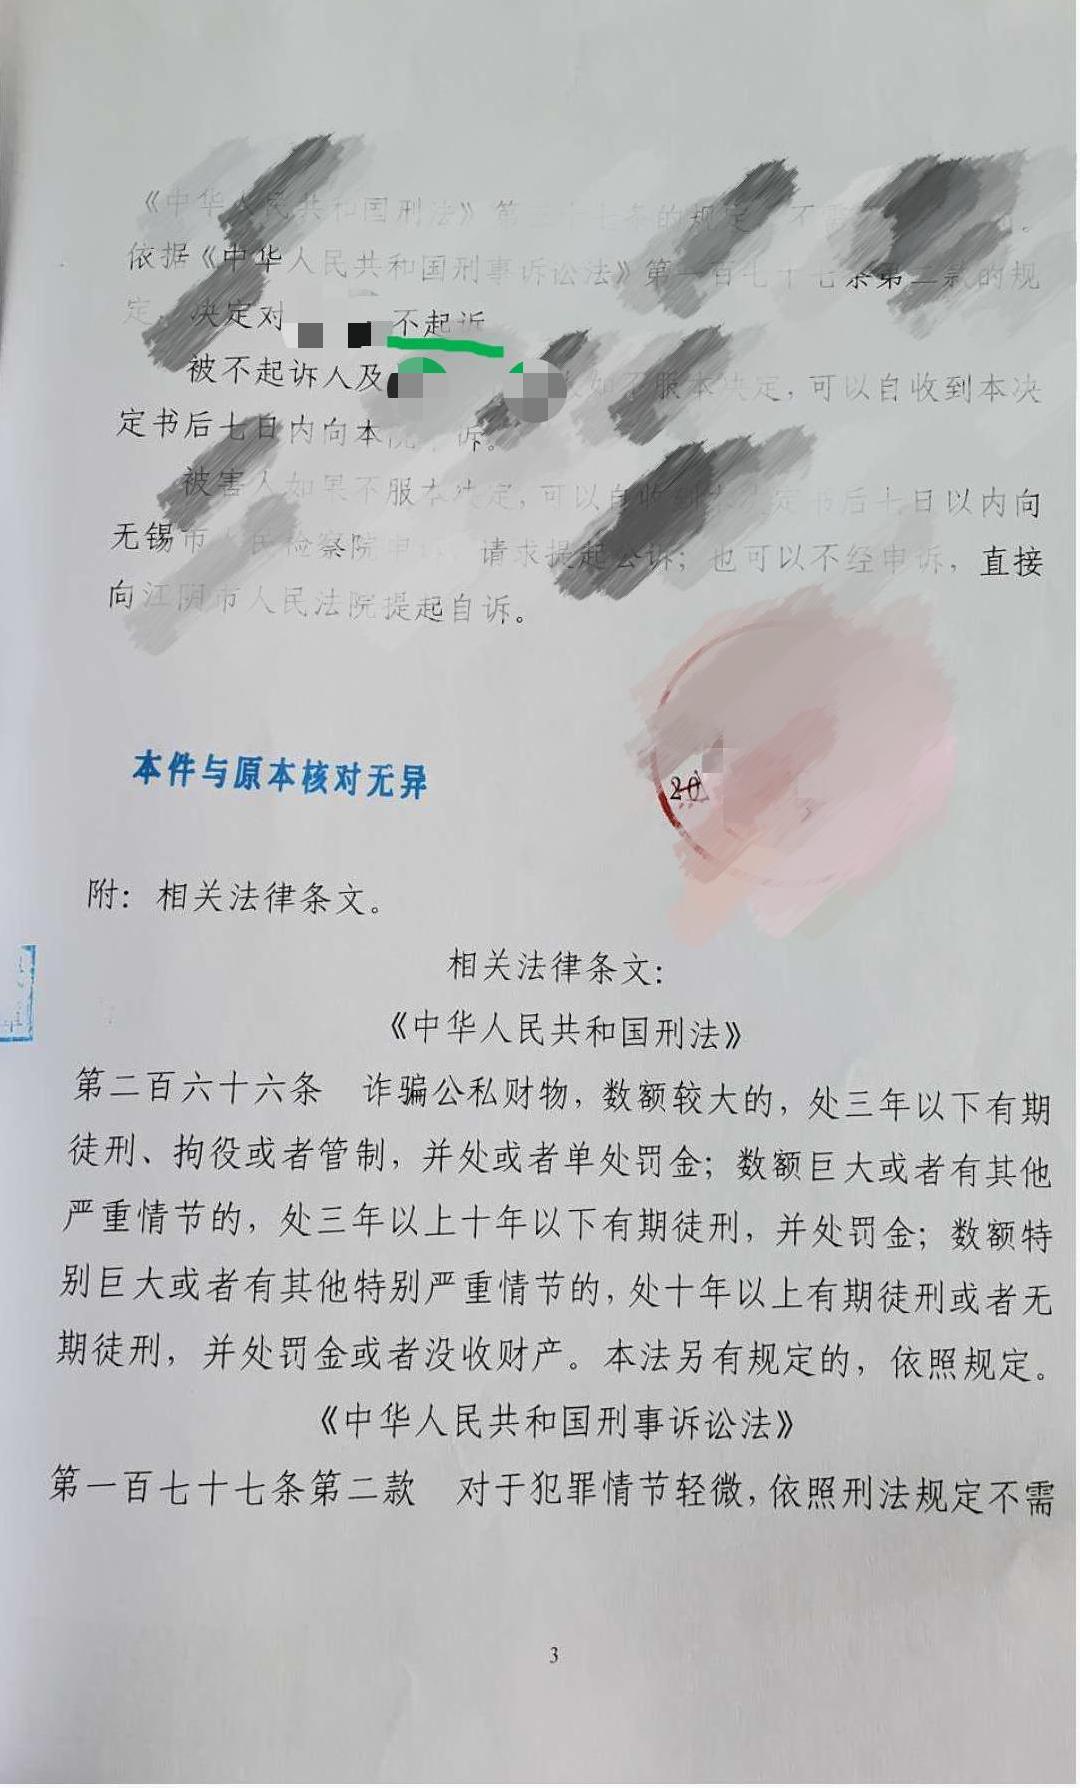 《中华人民共和国刑法》第三十七条的规定，不需
依据《中华人民共和国刑事诉讼法》第一百七十七条第二款的规
定，决定对 不起诉
被不起诉人及 如不服本决定，可以自收到本决
定书后七日内向本院 诉。
被害人如果不服本决定，可以自收到 定书后七日以内向
无锡市人民检察院申 请求提起公诉；也可以不经申诉，直接
向江阴市人民法院提起自诉。
20
本件与原本核对无异
附：相关法律条文。
相关法律条文：
《中华人民共和国刑法》
第二百六十六条 诈骗公私财物，数额较大的，处三年以下有期
徒刑、拘役或者管制，并处或者单处罚金；数额巨大或者有其他
严重情节的，处三年以上十年以下有期徒刑，并处罚金；数额特
别巨大或者有其他特别严重情节的，处十年以上有期徒刑或者无
期徒刑，并处罚金或者没收财产。本法另有规定的，依照规定。
《中华人民共和国刑事诉讼法》
第一百七十七条第二款 对于犯罪情节轻微，依照刑法规定不需
3